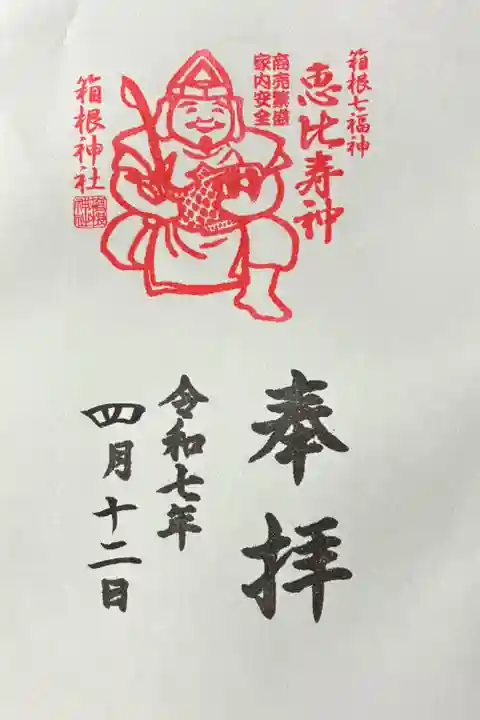 箱根七福神
恵比寿神
商売繁盛
家内安全
箱根神社
奉拝
令和七年
四月十二日